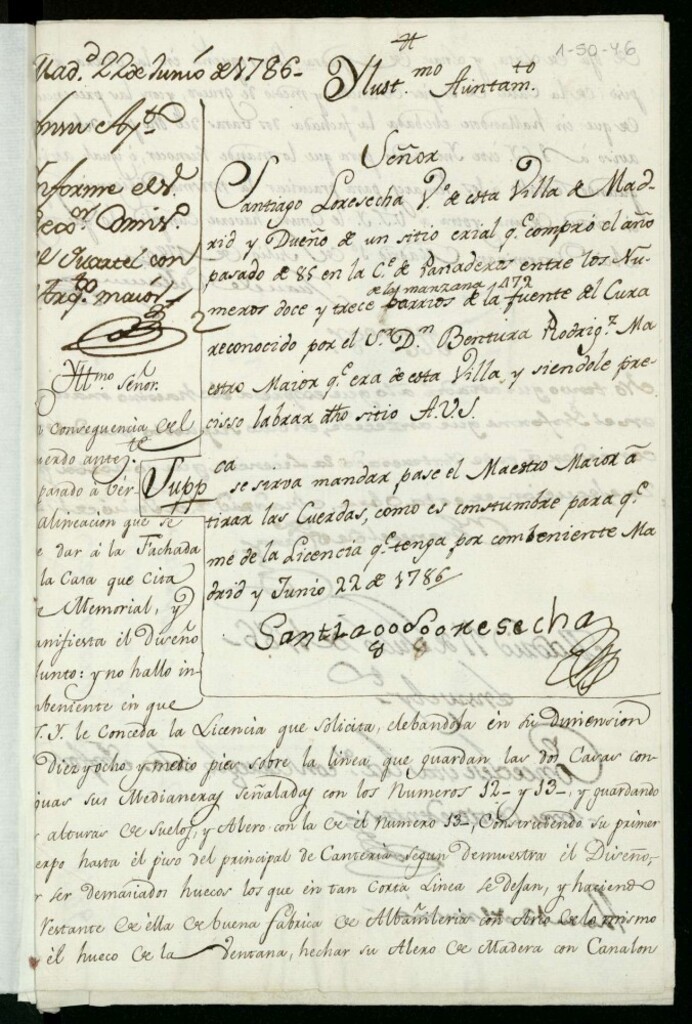 1-50-46
Mad.d 22 de Junio de 1786-
Yllust.mo Aiuntam.to
Ay.to
Informe el S.r
Comis.o
Quartel con
Arq.to maior
Señor
Santiago Loresecha V.o de esta Villa de Mad-
rid y Dueño de un sitio erial q.e compró el año
pasado de 85 en la C.e de Panaderos entre los Nu-
de la manzana 472
meros doce y trece barrios de la fuente del Cura
reconocido por el S.r D.n Bentura Rodrig.z Ma-
estro Maior q.e era de esta Villa, y siendole pre-
cisso labrar dho sitio A.V.S.
Supp.ca
se sirva mandar, pase el Maestro Maior á
tirar las Cuerdas, como es constumbre para q.e
me de la Licencia q.e tenga por combeniente Ma
drid y Junio 22 de 1786
Santiago Loresecha
Ill.mo Señor.
consequencia del
ante
parado á ver
alineacion que se
dar á la Fachada
la Casa que Cita
Memorial, y
anifiesta el Diseño
junto: y no hallo in-
beniente en que
V.Y. le Conceda la Licencia que solicita, elebandola en su Dimension
Diez y ocho y medio pies sobre la linea que guardan las dos Casas con-
guas sus Medianeras señaladas con los Numeros 12- y 13-, y guardando
alturas de suelos, y Alero con la de el Numero 13-, Construiendo su primer
erpo hasta el piso del principal de Canteria segun demuestra el Diseño,
r ser demaciados huecos los que en tan Corta Linea se dejan, y haciendo
Restante de ella de buena fabrica de Albañileria con Arco de lo mismo
el hueco de la Ventana, hechar su Alero de Madera con Canalon